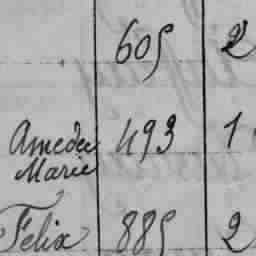 605 2
Amedee 493 1
Marie
Felix 885 2